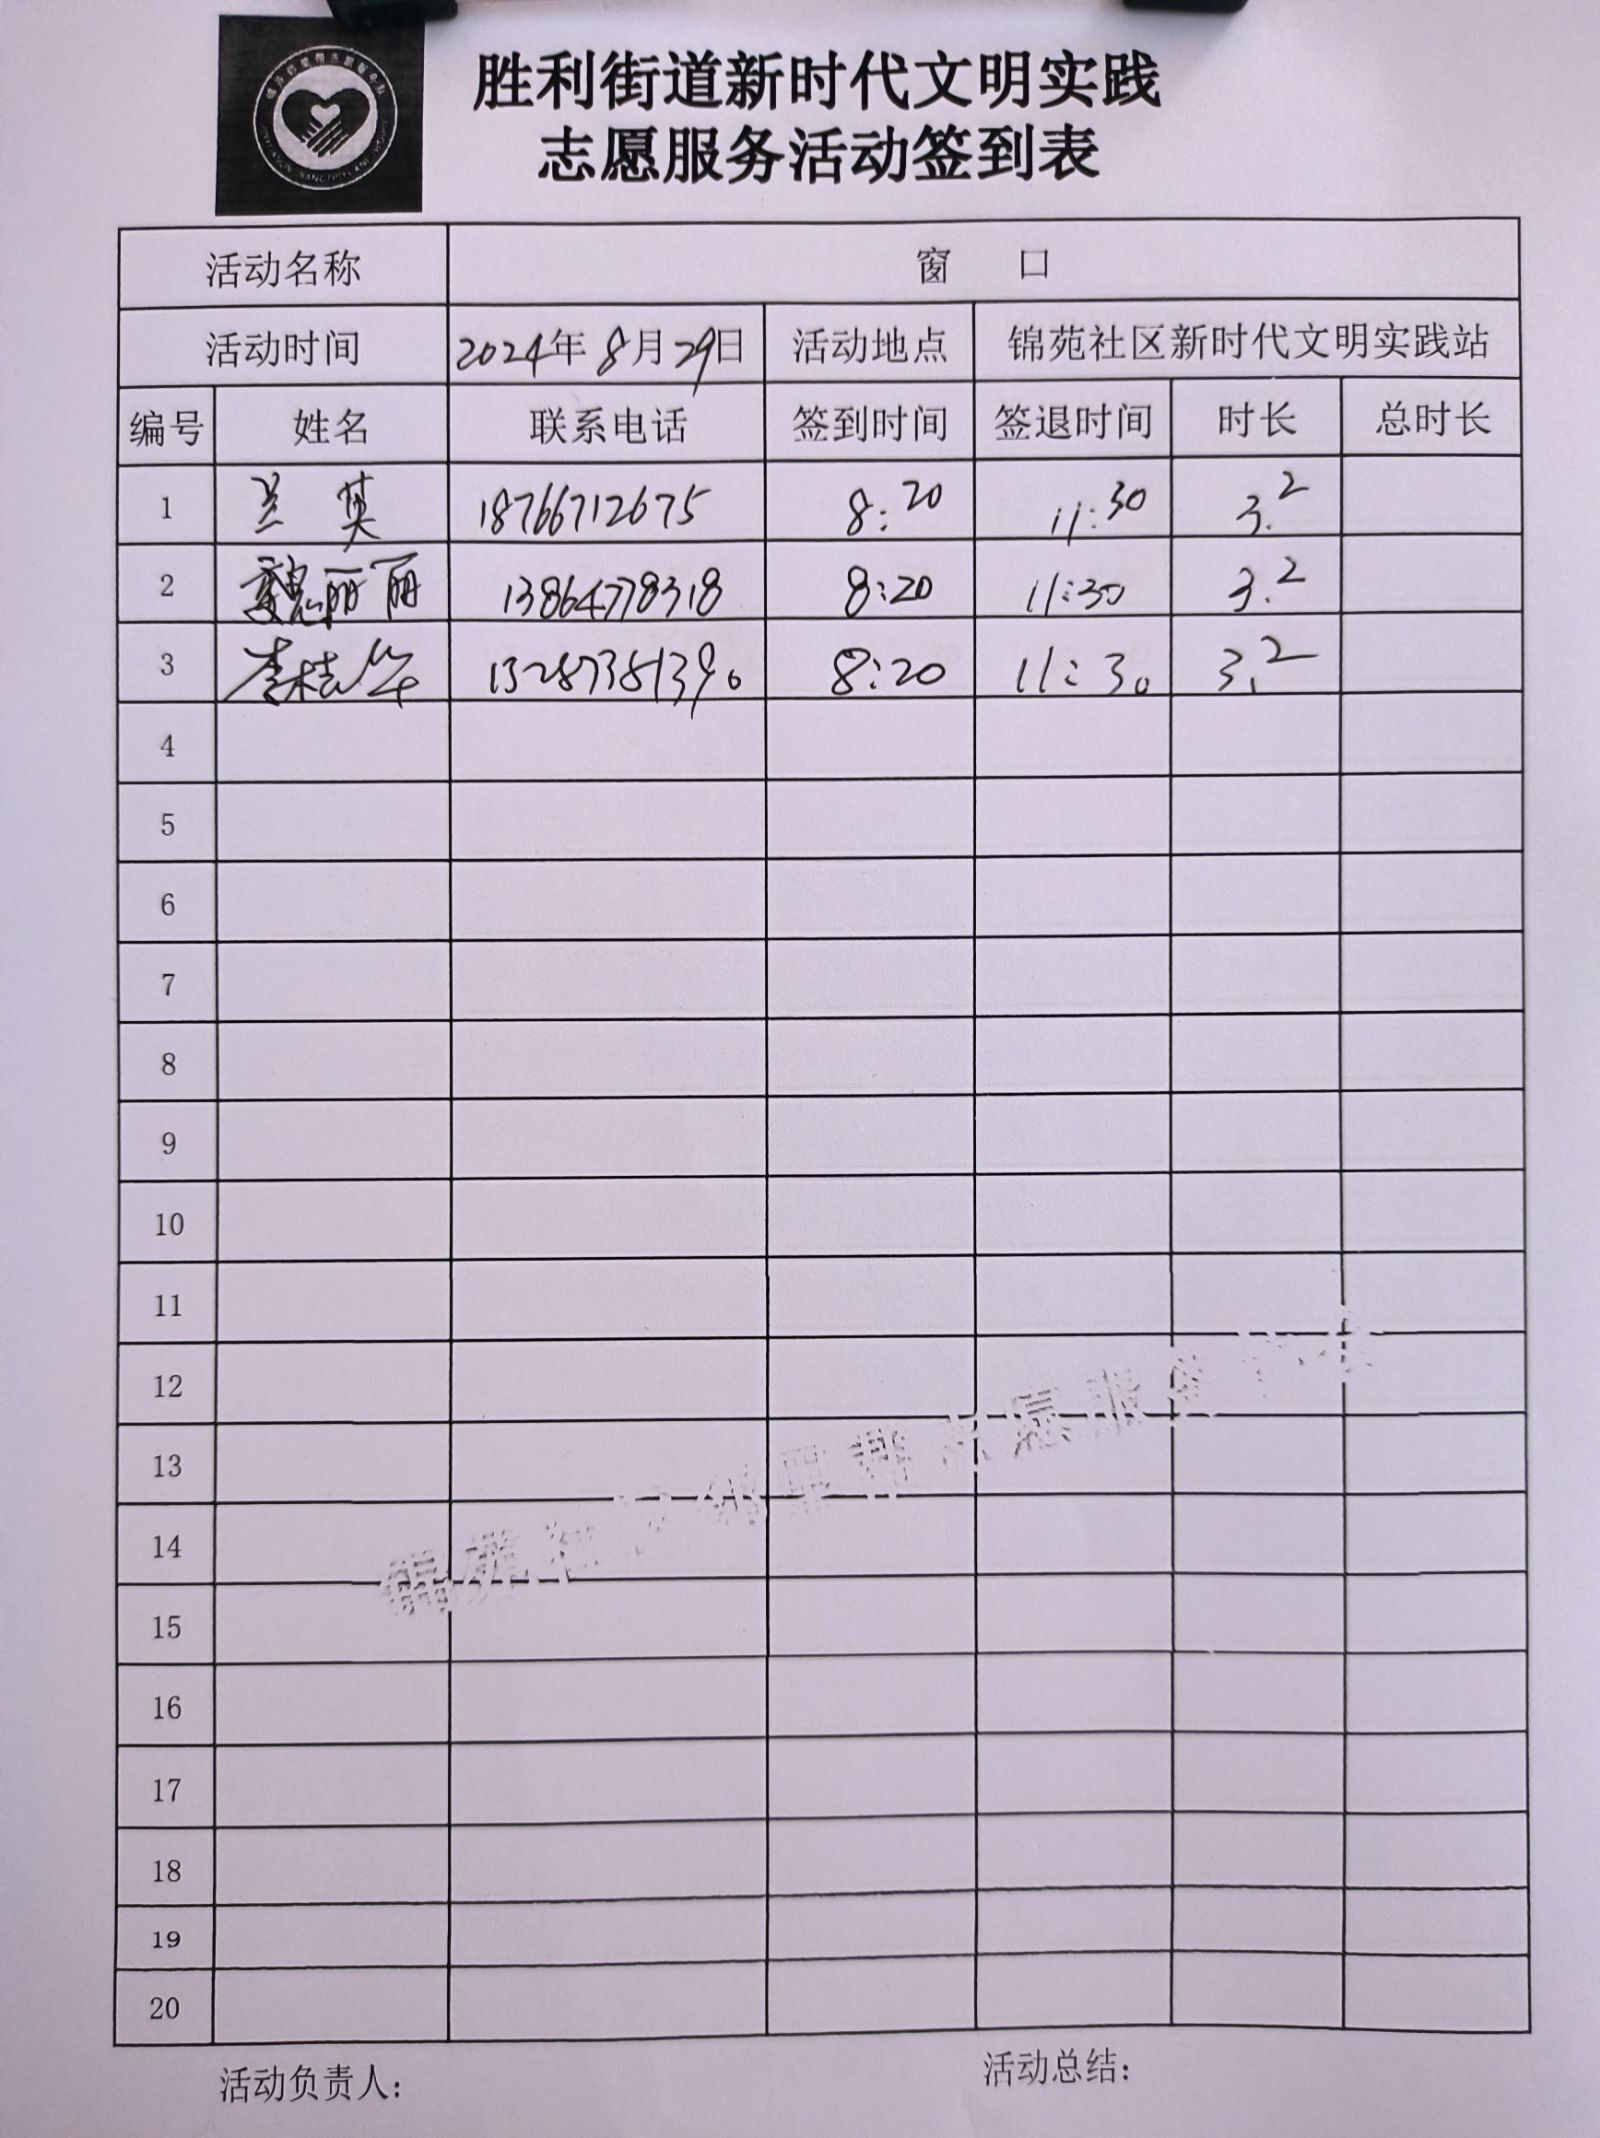 胜利街道新时代文明实践
志愿服务活动签到表
活动名称 窗 口
活动时间 2024年8月29日 活动地点 锦苑社区新时代文明实践站
编号 姓名 联系电话 签到时间 签退时间 时长 总时长
1 兰英 18766712675 8:20 11:30 3.2
2 魏丽丽 13864778318 8:20 11:30 3.2
3 李桂华 13287381390 8:20 11:30 3.2
4
5
6
7
8
9
10
11
12
13
14
15
16
17
18
19
20
锦苑社区邻里帮志愿服务
活动负责人: 活动总结: